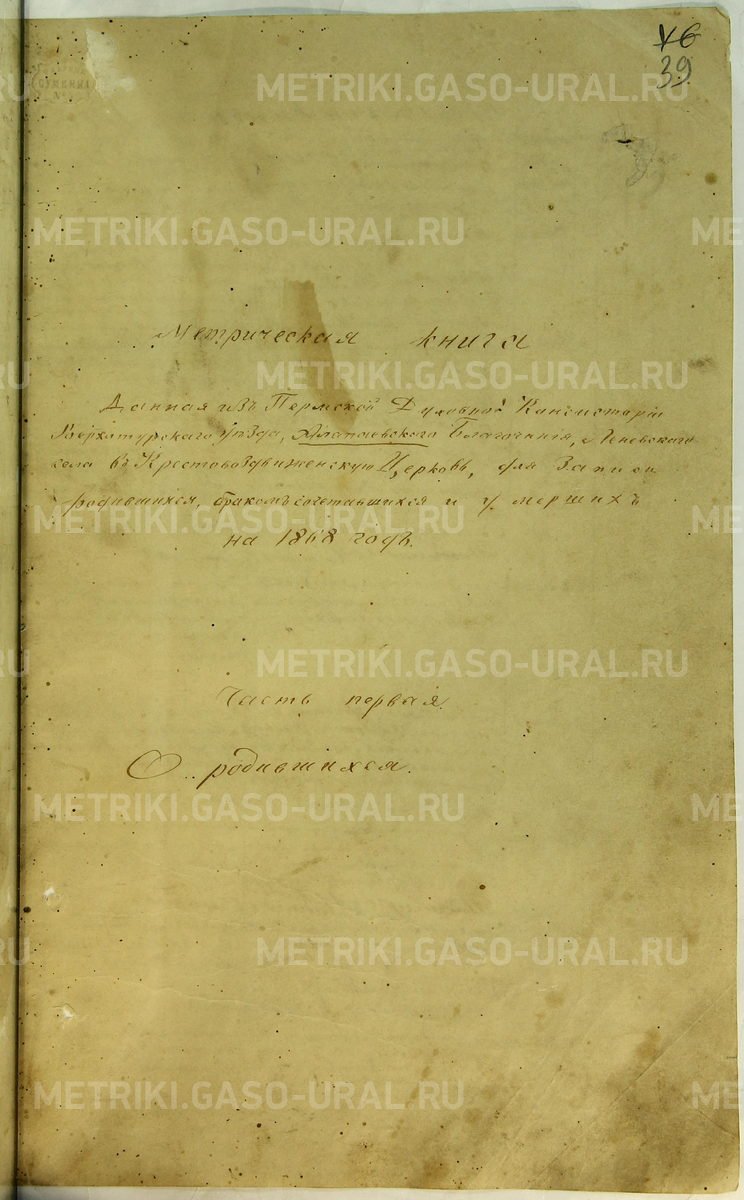 39
Метрическая книга
Данная изъ Пермской Духовной Консисторіи
Верхотурскаго уѣзда, Алапаевского Благочинія, Леневского
села въ Крестовоздвиженскую Церковь, для записи
родившихся, бракомъ сочетавшихся и умершихъ
на 1868 годъ.
Часть первая.
О родившихся.
METRIKI.GASO-URAL.RU
METRIKI.GASO-URAL.RU
METRIKI.GASO-URAL.RU
METRIKI.GASO-URAL.RU
METRIKI.GASO-URAL.RU
METRIKI.GASO-URAL.RU
METRIKI.GASO-URAL.RU
METRIKI.GASO-URAL.RU